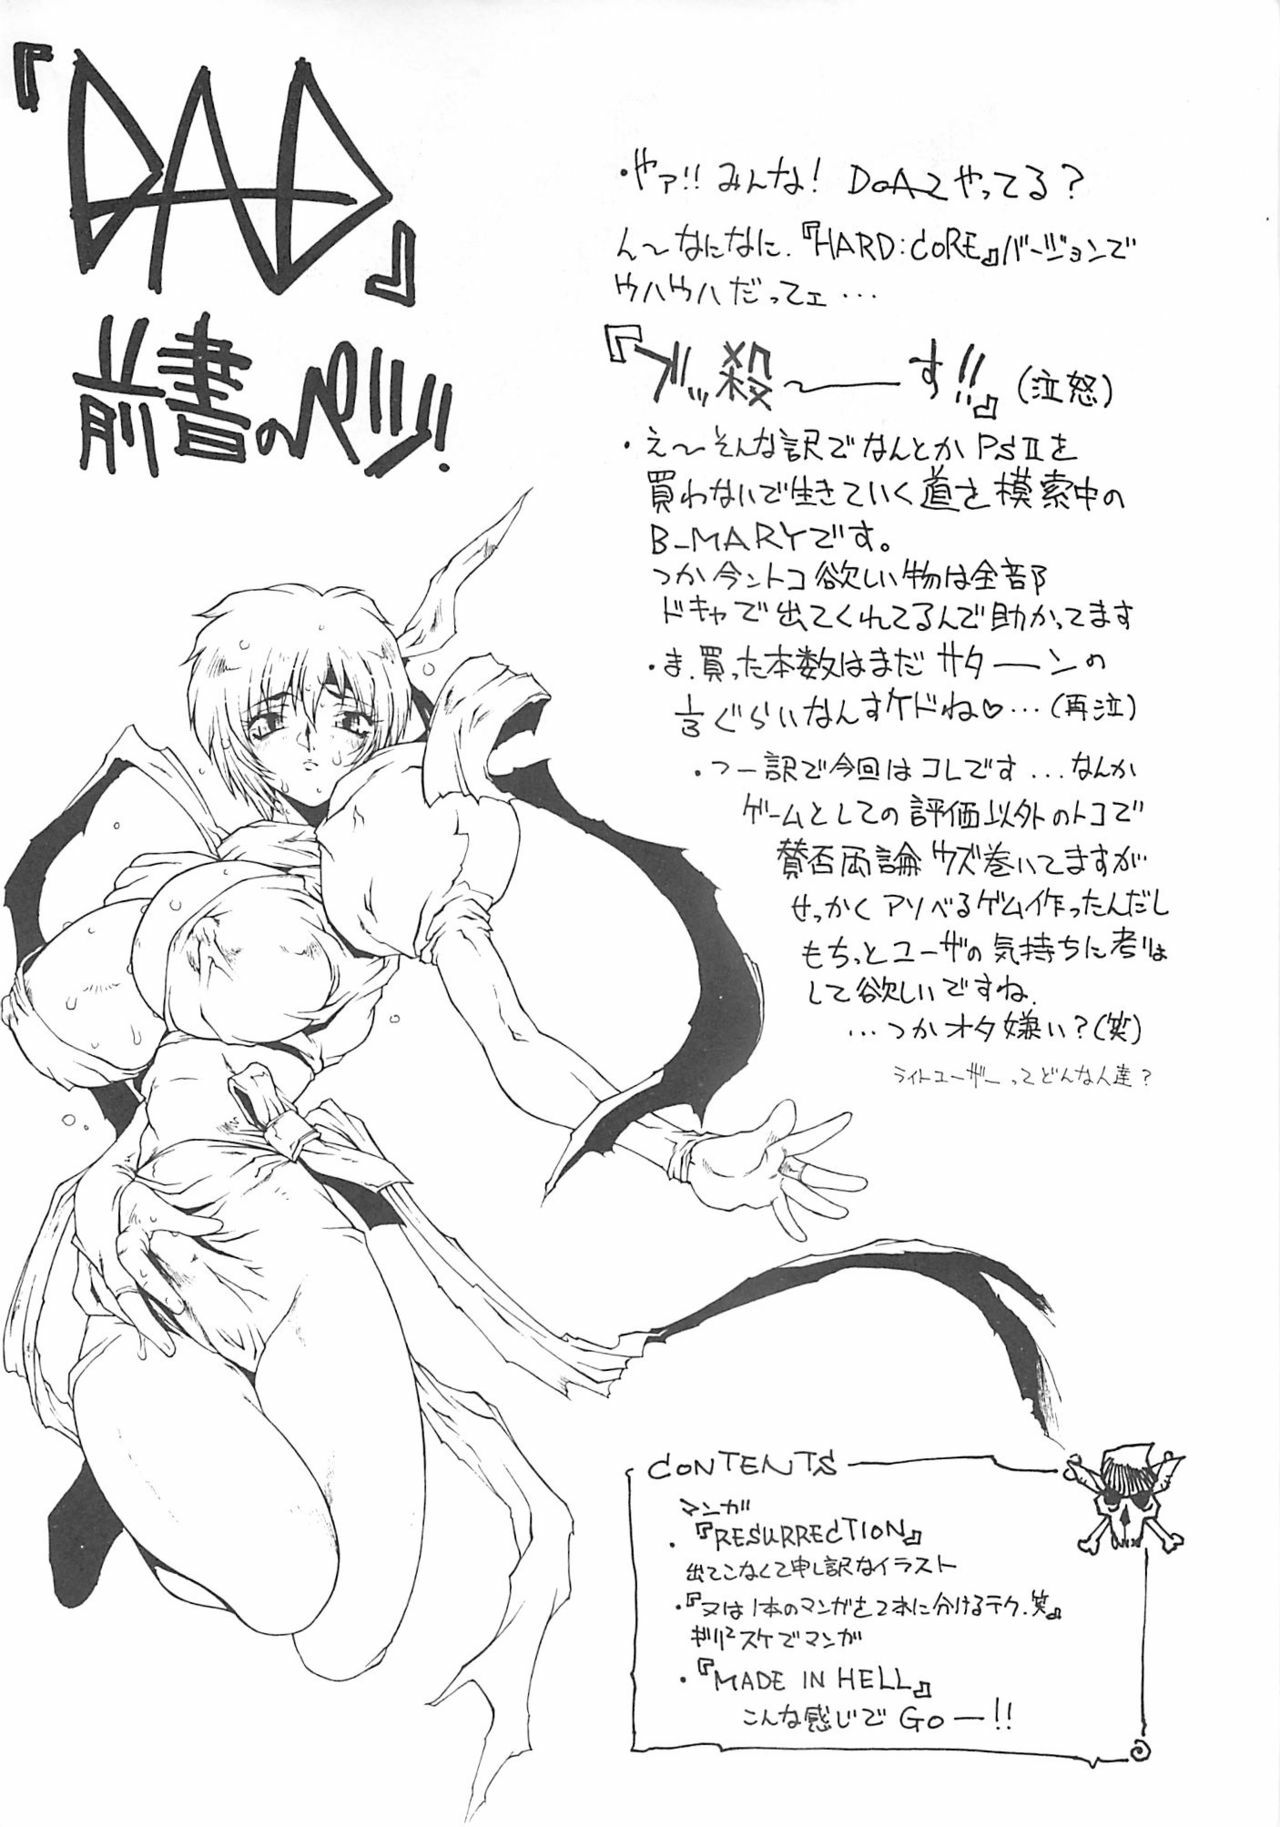 『DAD』
前書のページ!
・やァ!! みんな! DoA2やってる?
ん～なになに.『HARD:CORE』バージョンで
ウハウハだってェ…
『ブッ殺～――す!!』(泣怒)
・え～そんな訳でなんとかPSⅡを
買わないで生きていく道を模索中の
B-MARYです。
つか今ントコ欲しい物は全部
ドキャで出てくれてるんで助かってます
・ま、買った本数はまだサターンの
1/3ぐらいなんすケドね♡…(再泣)
・つー訳で今回はコレです…なんか
ゲームとしての評価以外のトコで
賛否両論ウズ巻いてますが
せっかくアソべるゲーム作ったんだし
もちっとユーザの気持ちに考は
して欲しいですね.
…つかオタ嫌い?(笑)
ライトユーザーってどんな人達?
CONTENTS
マンガ
・『RESURRECTION』
出てこなくて申し訳なイラスト
・『又は1本のマンガを2本に分けるテク.笑』
ギリ²スケでマンガ
・『MADE IN HELL』
こんな感じでGo―!!